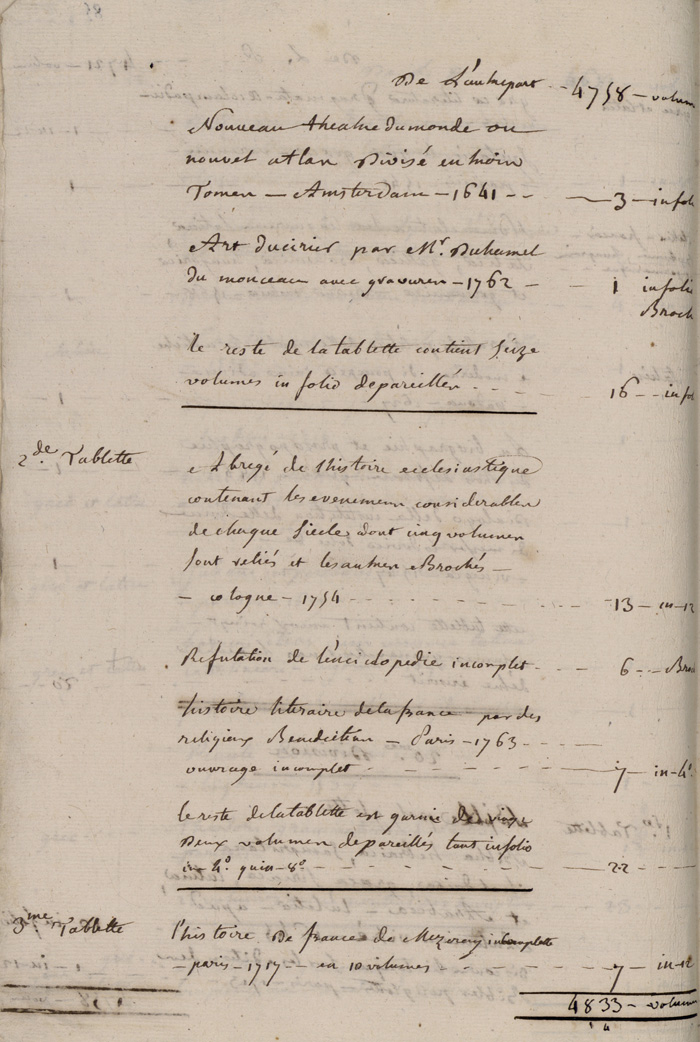 De L'autrepart -- 4758 - volum
Nouveau theatre du monde ou
nouvel atlas Divisé en trois
Tomes - Amsterdam - 1641 -- - 3 - infol
Art du cirier par Mr. Duhamel
du monceau avec gravures - 1762 - - 1 infolio
Broch
le reste de la tablette contient Seize
volumes in folio depareillés - - - 16 -- infol
2de. Tablette
Abregé de l'histoire ecclesiastique
contenant les evenemens considerables
de chaque Siecle, dont cinq volumes
Sont reliés et les autres Brochés -
- cologne - 1754 - - - - - - 13 - in-12
Refutation de l'enciclopedie incomplet - - - 6 -- Bro
histoire literaire de la france par des
religieux Benedictins - Paris - 1763 - - - -
ouvrage incomplet - - - - - 7 - in-4°
le reste de la tablette est garnie de vingt
Deux volumes depareillés tant infolio
in-4°. qu'in-8°. - - - - - - 22 - -
3me. Tablette
l'histoire De france de Mezeray incomplette
- paris - 1757 - en 10 volumes - - - - 7 - in-12
4833 - volum